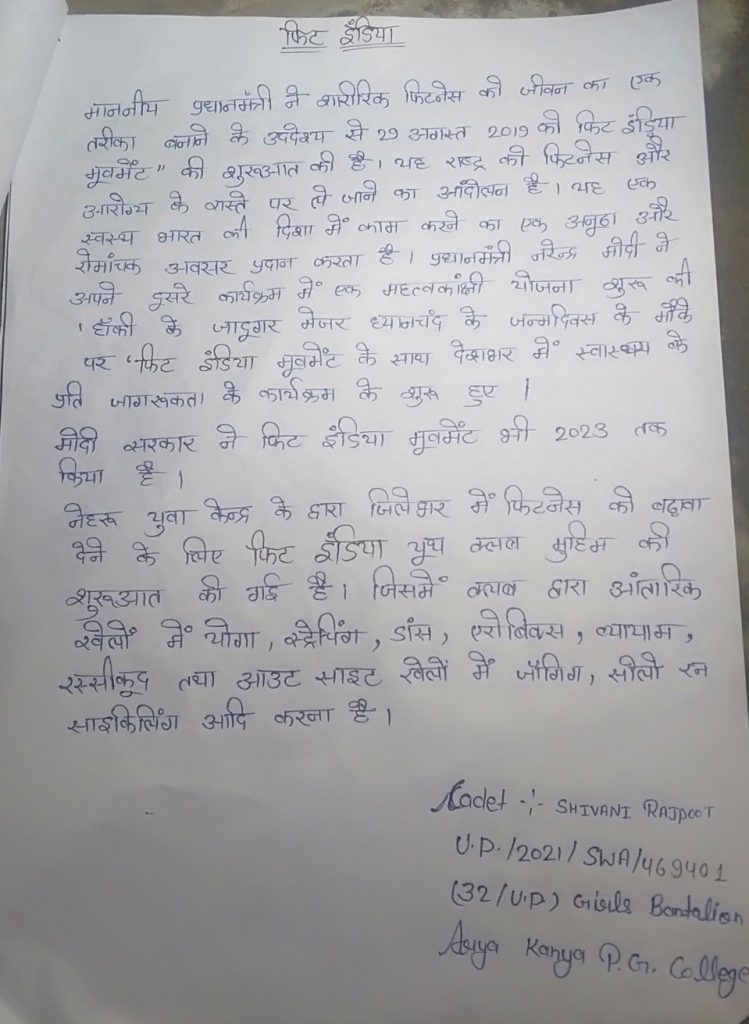 फिट इंडिया
माननीय प्रधानमंत्री ने शारीरिक फिटनेस को जीवन का एक
तरीका बनाने के उपदेश्य से 29 अगस्त 2019 को फिट इंड़िया
मूवमेंट" की शुरुआत की है। यह राष्ट्र को फिटनेस और
आरोग्य के रास्ते पर ले जाने का आंदोलन है। यह एक
स्वस्थ भारत की दिशा में काम करने का एक अनूठा और
रोमांचक अवसर प्रदान करता है। प्रधानमंत्री नरेन्द्र मोदी ने
अपने दूसरे कार्यक्रम में एक महत्वकांक्षी योजना शुरू की
' हॉकी के जादूगर मेजर ध्यानचंद के जन्मदिवस के मौके
पर 'फिट इंडिया मूवमेंट के साथ देशभर में स्वास्थ्य के
प्रति जागरूकता के कार्यक्रम के शुरू हुए।
मोदी सरकार ने फिट इंडिया मूवमेंट भी 2023 तक
किया है।
नेहरू युवा केन्द्र के द्वारा जिलेभर में फिटनेस को बढ़ावा
देने के लिए फिट इंडिया यूथ क्लब मुहिम की
शुरूआत की गई है। जिसमें क्लब द्वारा आंतरिक
खेलों में योगा, स्ट्रेचिंग, डांस, एरोबिक्स, व्यायाम,
रस्सीकूद तथा आउट साइट खेलों में जॉगिंग, सोलो रन
साइकिलिंग आदि करना है।
Cadet -:- SHIVANI RAJPOOT
U.P./2021/SWA/469401
(32/U.P) Girls Bantalion
Arya Kanya P.G. College